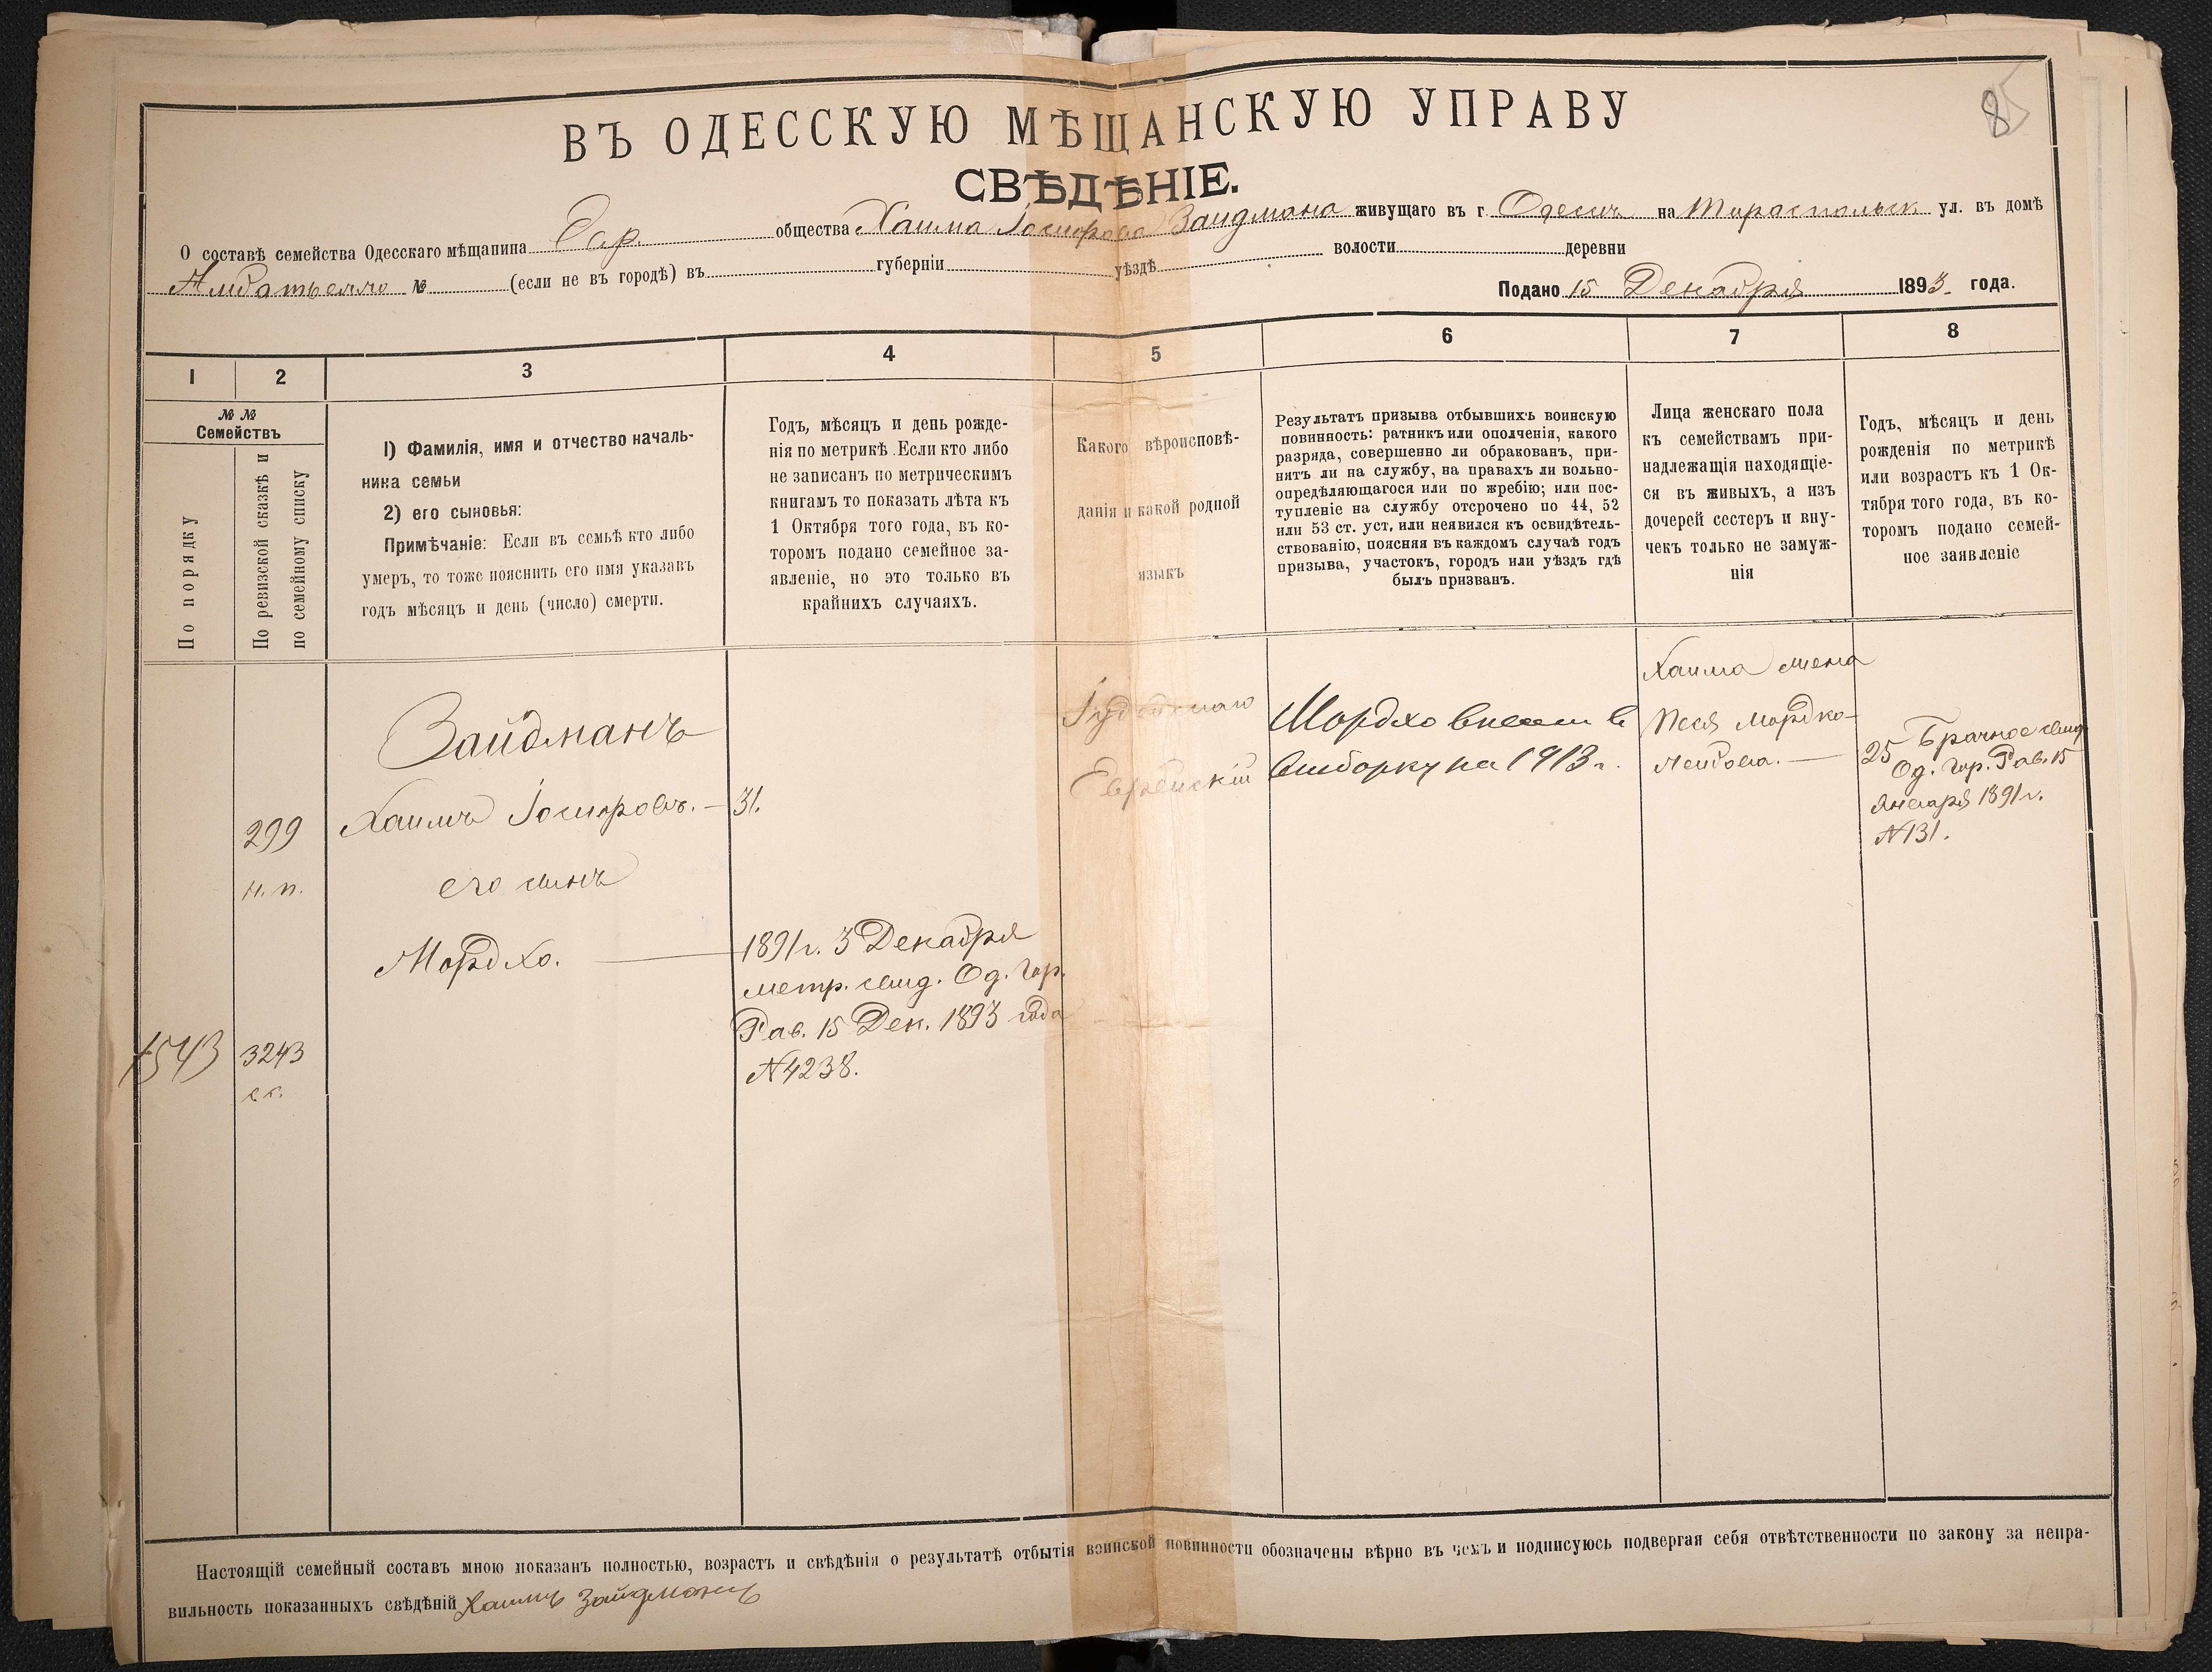 85
ВЪ ОДЕССКУЮ МѢЩАНСКУЮ УПРАВУ
СВѢДѢНІЕ.
О составѣ семейства Одесскаго мѣщанина Евр. общества Хаима Іосифова Зайдмана живущаго въ г. Одессѣ на Тираспольск. ул. въ домѣ
№ (если не въ городѣ) въ губерніи уѣздѣ волости деревни
Подано 15 Декабря 1893 года.
1 2 3 4 5 6 7 8
№ №
Семействъ
По порядку
По ревизской сказкѣ и
по семейному списку
1) Фамилія, имя и отчество началь-
ника семьи
2) его сыновья:
Примѣчаніе: Если въ семьѣ кто либо
умеръ, то тоже пояснить его имя указавъ
годъ мѣсяцъ и день (число) смерти.
Годъ, мѣсяцъ и день рожде-
нія по метрикѣ. Если кто либо
не записанъ по метрическимъ
книгамъ то показать лѣта къ
1 Октября того года, въ ко-
торомъ подано семейное за-
явленіе, но это только въ
крайнихъ случаяхъ.
Какого вѣроисповѣ-
данія и какой родной
языкъ
Результатъ призыва отбывшихъ воинскую
повинность: ратникъ или ополченія, какого
разряда, совершенно ли обракованъ, при-
нятъ ли на службу, на правахъ ли вольно-
опредѣляющагося или по жребію; или пос-
тупленіе на службу отсрочено по 44, 52
или 53 ст. уст, или неявился къ освидѣтель-
ствованію, поясняя въ каждомъ случаѣ годъ
призыва, участокъ, городъ или уѣздъ гдѣ
былъ призванъ.
Лица женскаго пола
къ семействамъ при-
надлежащія находящіе-
ся въ живыхъ, а изъ
дочерей сестеръ и вну-
чекъ только не замуж-
нія
Годъ, мѣсяцъ и день
рожденія по метрикѣ
или возрастъ къ 1 Ок-
тября того года, въ ко-
торомъ подано семей-
ное заявленіе
299
н. п.
1543
3243
Зайдманъ
Хаимъ Іосифовъ. — 31.
его сынъ
Мордхо. —
1891 г. 3 Декабря
метр. свид. Од. Гор.
Рав. 15 Дек. 1893 года
№ 4238.
Іудейскаго
Еврейскій
Мордхо внесен в
выборку на 1913 г.
Хаима жена
Песя Мордко-
Лейбова. —
25 Брачное свид.
Од. Гор. Рав. 15
Января 1891 г.
№ 131.
Настоящій семейный составъ мною показанъ полностью, возрастъ и свѣдѣнія о результатѣ отбытія воинской повинности обозначены вѣрно въ чемъ и подписуюсь подвергая себя отвѣтственности по закону за непра-
вильность показанныхъ свѣдѣній Хаимъ Зайдманъ